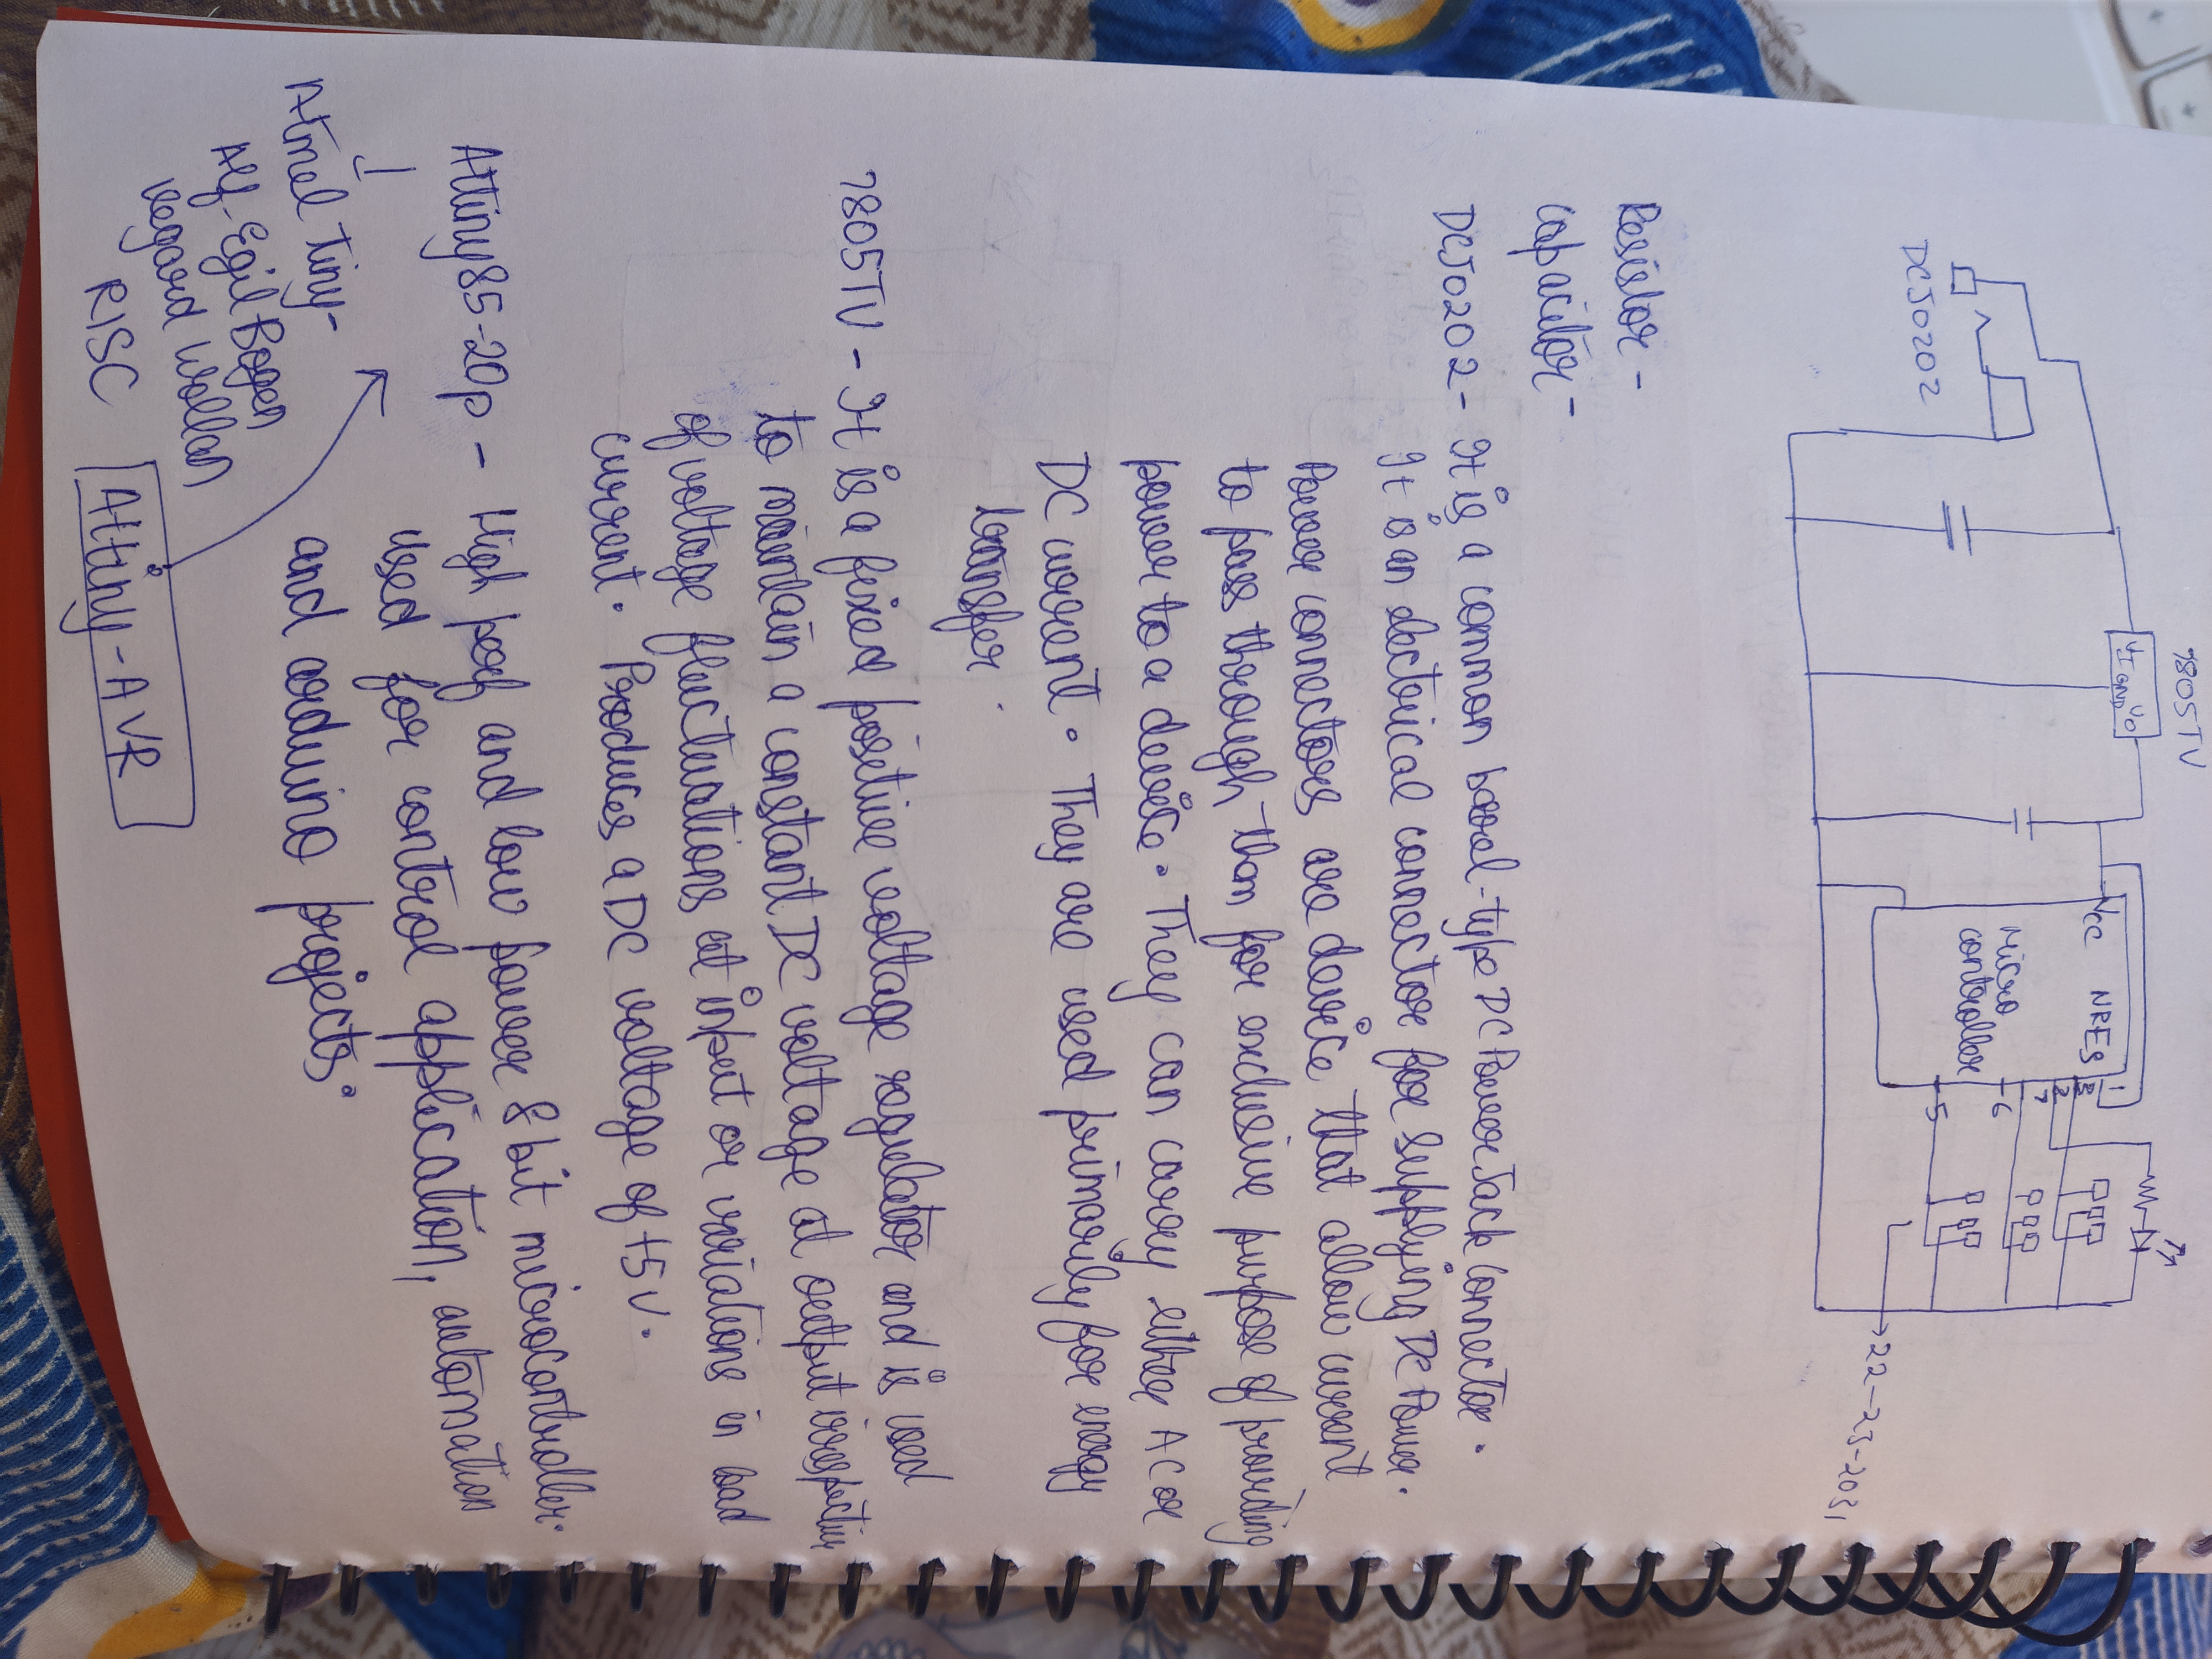 7805TV
VI GND VO
DCJ0202
Vcc NRES
Micro
controller
1
3
2
7
6
5
22-23-2031
Resistor -
Capacitor -
DCJ0202 - It is a common barrel-type DC Power Jack Connector.
It is an electrical connector for supplying DC Power.
Power connectors are device that allow current
to pass through them for exclusive purpose of providing
power to a device. They can carry either AC or
DC current. They are used primarily for energy
transfer.
7805TV - It is a fixed positive voltage regulator and is used
to maintain a constant DC voltage at output irrespective
of voltage fluctuations at input or variations in load
current. Produces a DC voltage of +5V.
Attiny85-20p - High perf and low power 8 bit microcontroller.
used for control application, automation
and arduino projects.
Atmel Tiny-
Alf-Egil Bogen
Vegard Wollan
RISC
Attiny-AVR